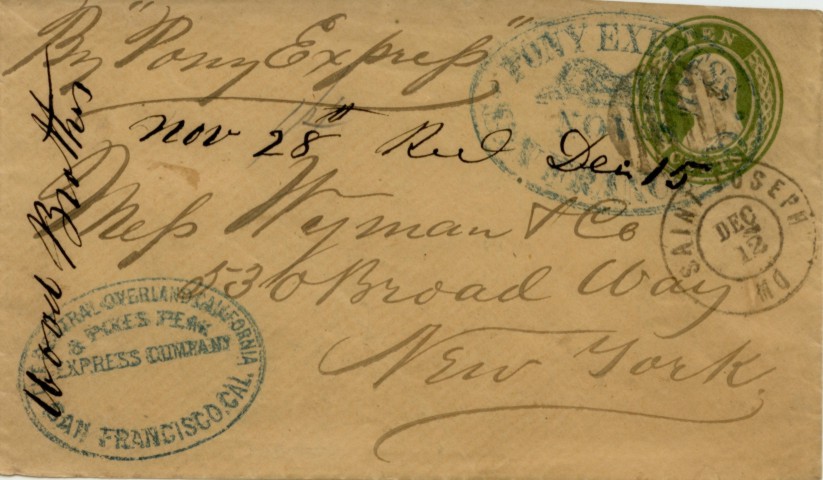 By "Pony Express"
PONY EXPRESS
NOV
TEN
Nov 28th Recd Dec 15
Mess Wyman & Co
530 Broad Way
New York.
SAINT JOSEPH MO
DEC
12
Wood Brothers
CENTRAL OVERLAND CALIFORNIA
& PIKES PEAK
EXPRESS COMPANY
SAN FRANCISCO, CAL.